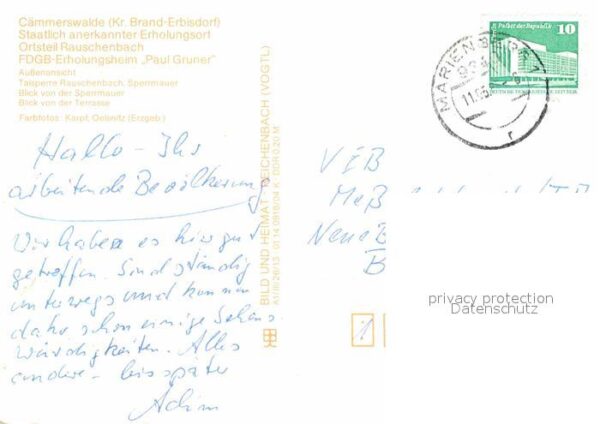 Cämmerswalde (Kr. Brand-Erbisdorf)
Staatlich anerkannter Erholungsort
Ortsteil Rauschenbach
FDGB-Erholungsheim „Paul Gruner"
Außenansicht
Talsperre Rauschenbach, Sperrmauer
Blick von der Sperrmauer
Blick von der Terrasse
Farbfotos: Karpf, Oelsnitz (Erzgeb.)
Hallo - Ihr
arbeitende Bevölkerung
Wir haben es hier gut
getroffen. Sind ständig
unterwegs und kennen
daher schon einige Sehens
würdigkeiten. Alles
andere - bis später
Achim
BILD UND HEIMAT REICHENBACH (VOGTL)
A1/III/26/13 01 14 0916/04 K DDR 0,20 M
Palast der Republik
10
DDR
MARIENBERG 1
r
VEB
Meß
Neue B
B
1
privacy protection
Datenschutz